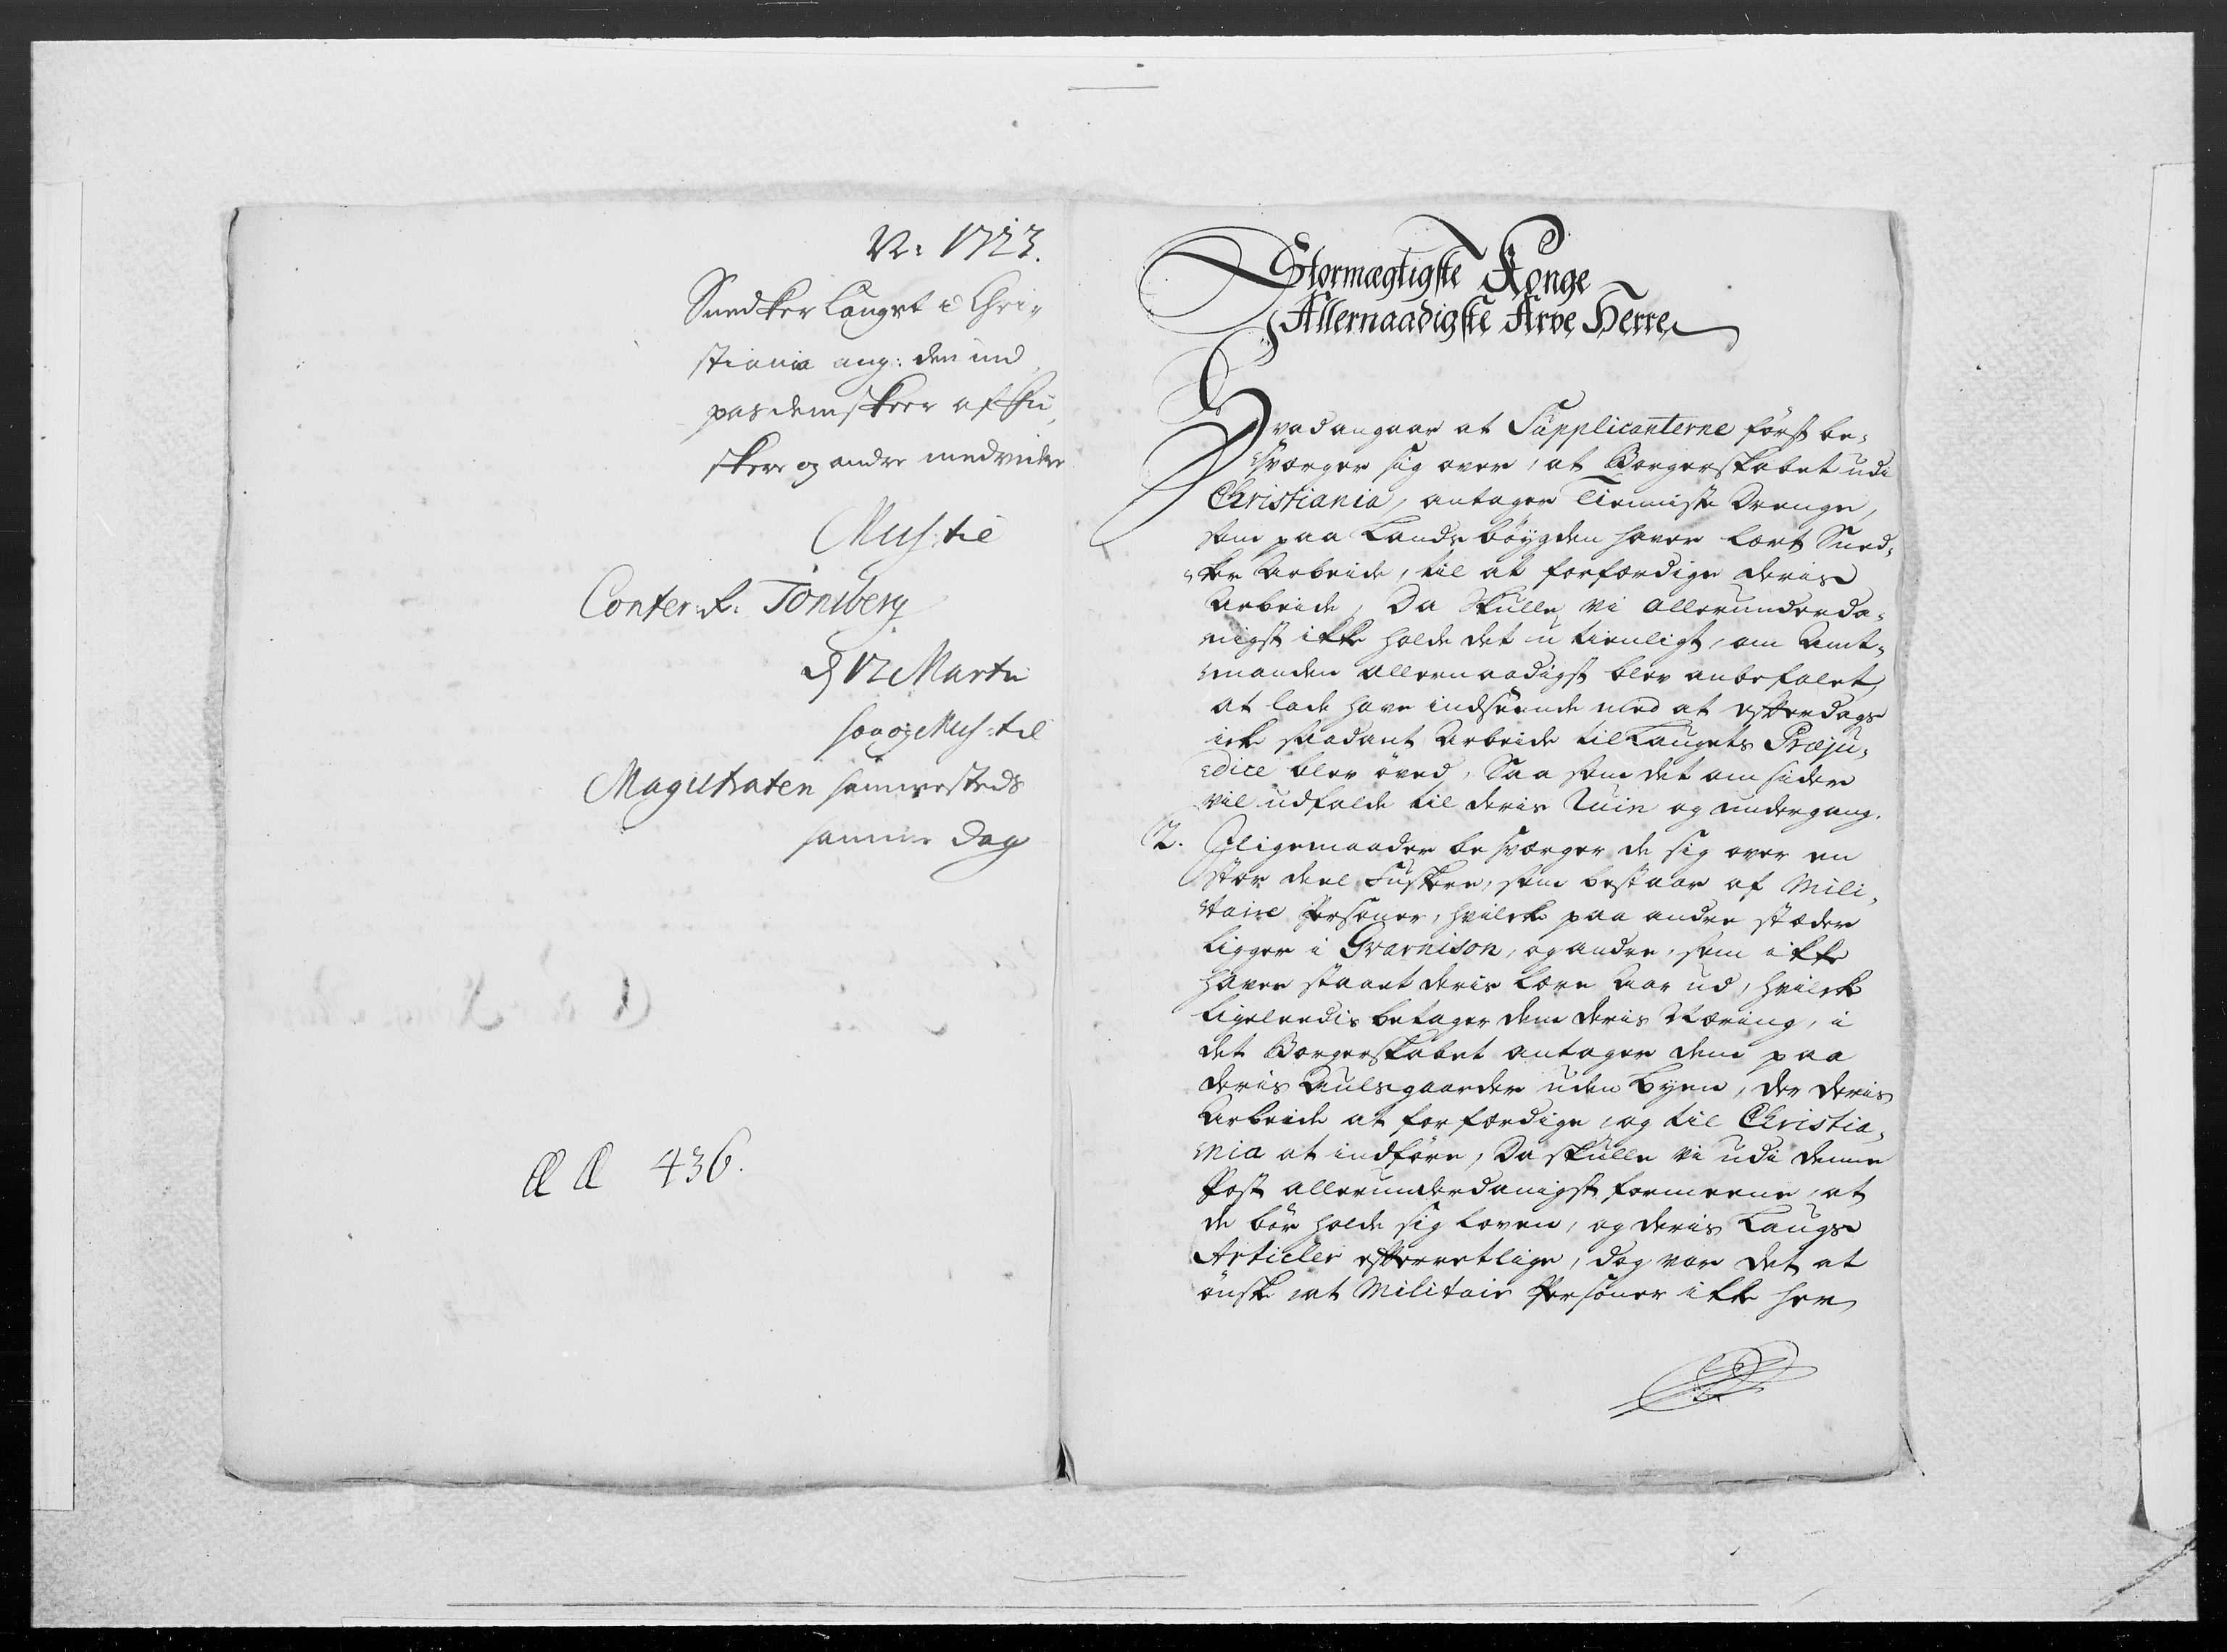 N: 1723.
Snedker Lauget i Chri-
stiania ang: den ind
pas dem skeer af Fu-
skere og andre medvidere
Miss: til
Confer: R: Tonsberg
D 12 Martii
saa og Miss: til
Magistraten sammesteds
samme Dag
436.
Stormægtigste Konge
Allernaadigste Arve Herre
Hvad angaar at Supplicanterne först be-
sværger sig over, at Borgerskabet udi
Christiania, antager Tienniste Drenge,
som paa Landsböygden haver lært Sned-
ker Arbeide, til at forfærdige deris
Arbeide, Da skulle vi allerunderda-
nigst ikke holde det u-tienligt, om Amt-
manden allernaadigst blev anbefalet,
at lade have indseende med at efterdags
icke saadant Arbeide til Laugets Præju-
dice blev öved, Saa som det om sider
vil udfalde til deris Ruin og undergang.
2. Iligemaader besværger de sig over en
stor deel Fuskere, som bestaar af Mili-
taire Personer, hvilcke paa andre stæder
ligger i Gvarnison, og andre, som ikke
haver staaet deris Lære Aar ud, hvilcke
ligeleedis betager dem deris Næring, i
det Borgerskabet antager dem paa
deris Aulsgaarder uden Byen, der deris
Arbeide at forfærdige, og til Christia-
nia at indföre, Da skulle vi udi denne
Post allerunderdanigst formeene, at
de bör holde sig Loven, og deris Laugs
Articler efterretlige, dog var det at
önske, at Militair Personer ikke her